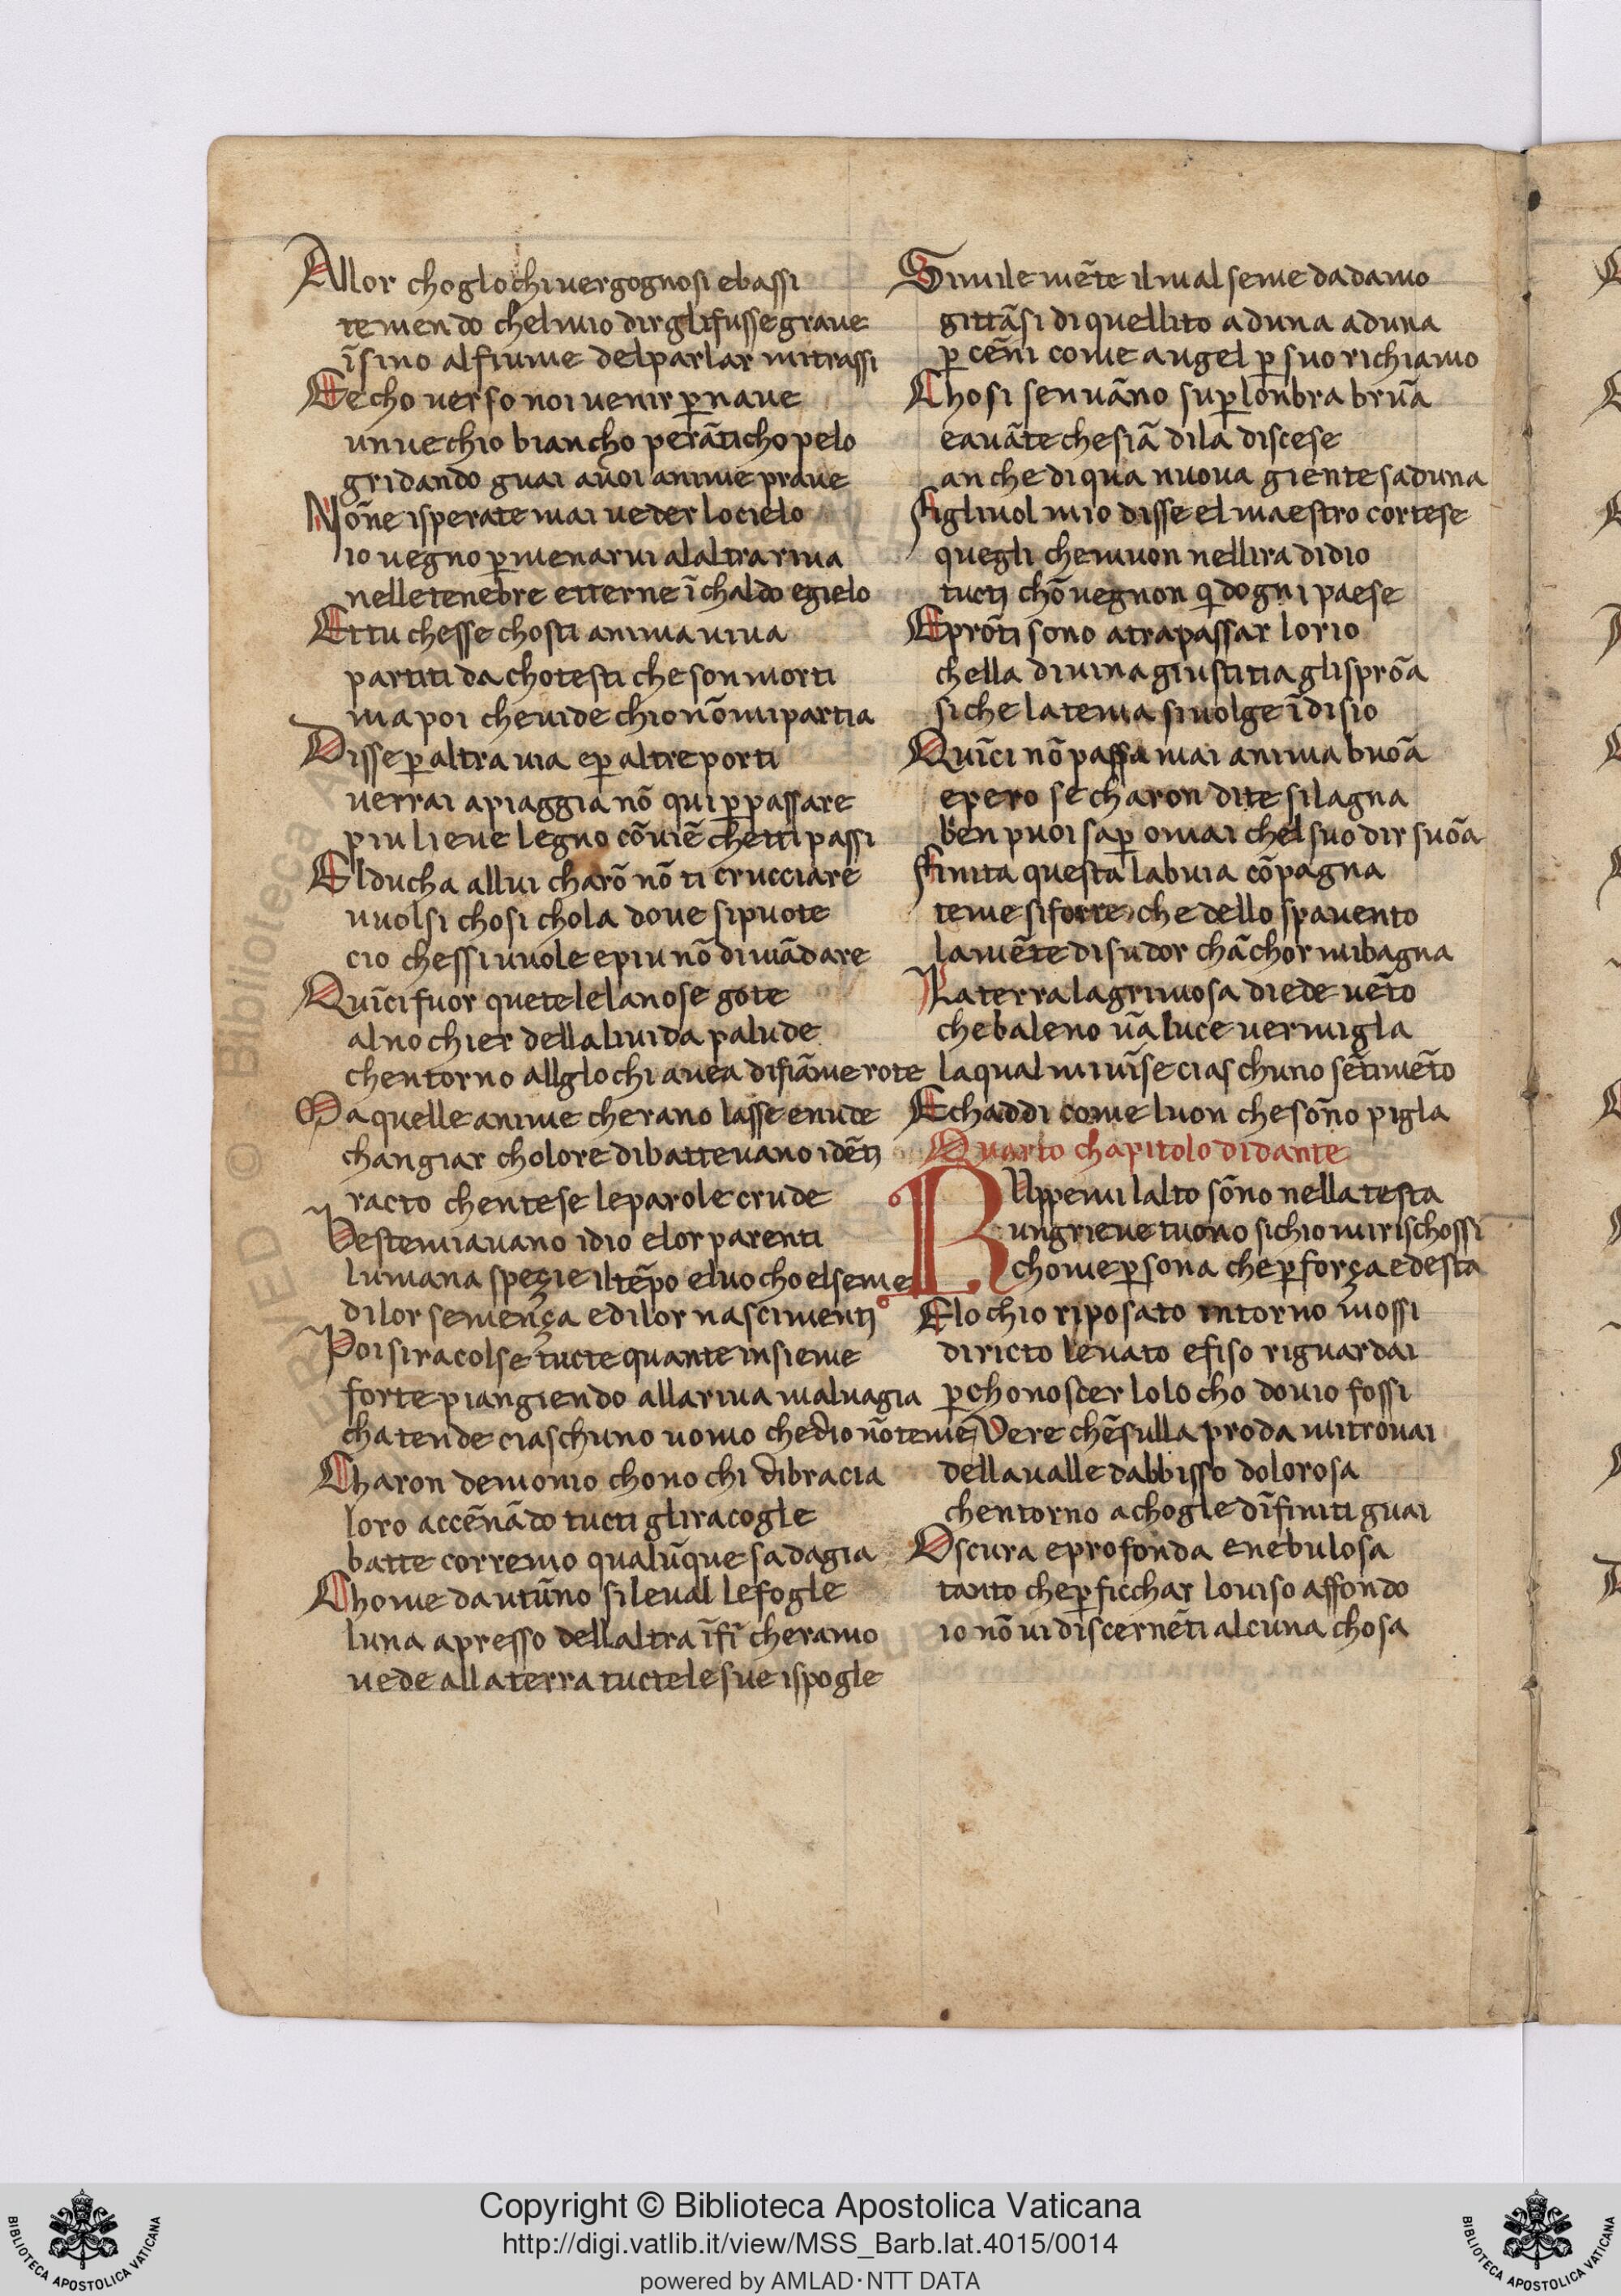 Allor choglochi uergognosi ebassi
temendo chelmio dirglifusse graue
ĩsino alfiume delparlar mitrassi
Eecho uerso noi uenir p̲ naue
unuechio biancho perãticho pelo
gridando guai auoi anime praue
Nõne isperate mai ueder locielo
io uegno p̲ menarui alaltra riua
nelletenebre etterne ĩ chaldo egielo
Ettu chesse chosti anima uiua
partiti da chotesti che son morti
ma poi cheuide chio nõ mipartia
Disse p̲ altra uia ep̲ altre porti
uerrai apiaggia nõ qui p̲ passare
piu lieue legno cõuiẽ chetti passi
Elducha allui charõ nõ ti crucciare
uuolsi chosi chola doue sipuote
cio chessiuuole epiu nõ dimãdare
Quĩci fuor quete lelanose gote
alnochier dellaliuida palude
chentorno allglochi auea difiãme rote
Ma quelle anime cherano lasse enude
changiar cholore dibatteuano idẽti
racto chentese leparole crude
Bestemiauano idio elor parenti
lumana speçie iltẽpo eluocho elseme
dilor semẽnça edilor nascimenti
Poi siracolse tucte quante insieme
forte piangiendo allariua maluagia
chatende ciaschuno uomo chedio nõ teme
Charon demonio chonochi dibracia
loro accẽnãdo tucti gliracogle
batte corremo qualũque sadagia
Chome dautũno sileual lefogle
luna apresso dellaltra ĩfĩ cheramo
uede allaterra tucte le sue ispogle
Simile mẽte ilmal seme dadamo
gittãsi di quellito aduna aduna
p̲ cẽni come augel p̲ suo richiamo
Chosi senuãno sup̲ lonbra bruã
eauãte chesiã dila discese
anche diqua nuova giente saduna
Figliuol mio disse elmaestro cortese
quegli chemuon nellira didio
tucti chõuegnon qi dogni paese
Eprõti sono atrapassar lorio
chella diuina giustitia glisprõa
siche latema siuolge ĩ disio
Quĩci nõ passa mai anima buõa
epero se charon dite silagna
ben puoi sap̲ omai chel suo dir suõa
Finita questa labuia cõpagna
teme siforte che dello spauento
lamẽte disudor chãchor mibagna
La terra lagrimosa diede uẽto
chebaleno uã luce uermigla
laqual miuĩse ciaschuno sẽtimẽto
Echaddi come luon chesõno pigla
Quarto chapitolo didante
RUppemi lalto sõno nella testa
ungrieue tuono sichio mirischossi
chome p̲sona chep̲ força edesta
Elochio riposato intorno mossi
diricto leuato efiso riguardai
p̲ chonoscer lolocho douio fossi
Vere chẽsulla proda mitrouai
dellaualle dabbisso dolorosa
chentorno achogle dĩfiniti guai
Oscura eprofonda enebulosa
tanto chep̲ ficchar louiso affondo
io nõ ui discernẽti alcuna chosa
Copyright © Biblioteca Apostolica Vaticana
http://digi.vatlib.it/view/MSS_Barb.lat.4015/0014
powered by AMLAD·NTT DATA
BIBLIOTECA APOSTOLICA VATICANA
BIBLIOTECA APOSTOLICA VATICANA